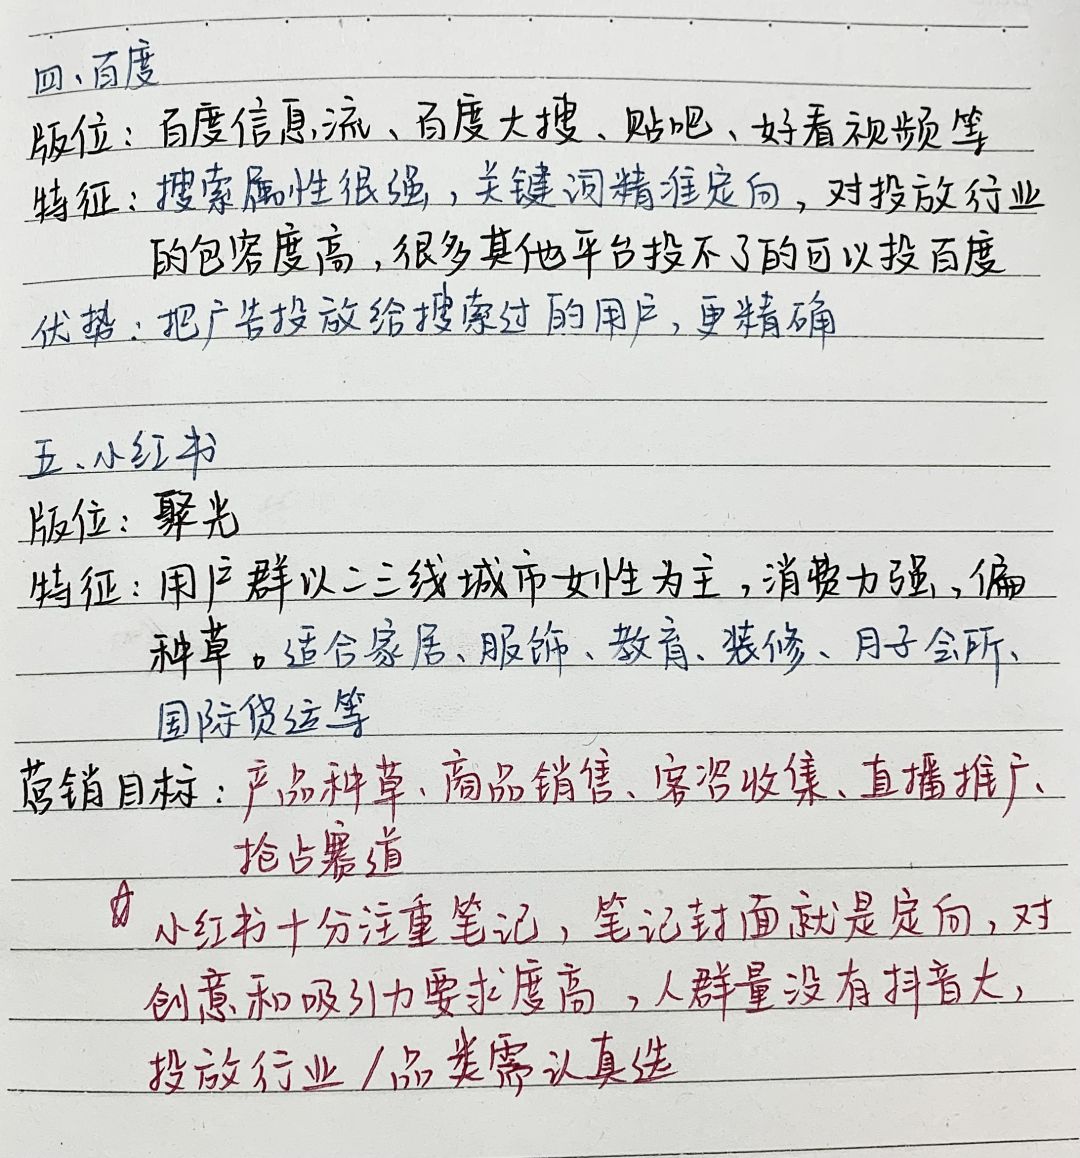 四、百度
版位：百度信息流、百度大搜、贴吧、好看视频等
特征：搜索属性很强，关键词精准定向，对投放行业
的包容度高，很多其他平台投不了的可以投百度
优势：把广告投放给搜索过的用户，更精确
五、小红书
版位：聚光
特征：用户群以二三线城市女性为主，消费力强，偏
种草。适合家居、服饰、教育、装修、月子会所、
国际货运等
营销目标：产品种草、商品销售、客咨收集、直播推广、
抢占赛道
☆小红书十分注重笔记，笔记封面就是定向，对
创意和吸引力要求度高，人群量没有抖音大，
投放行业/品类需认真选